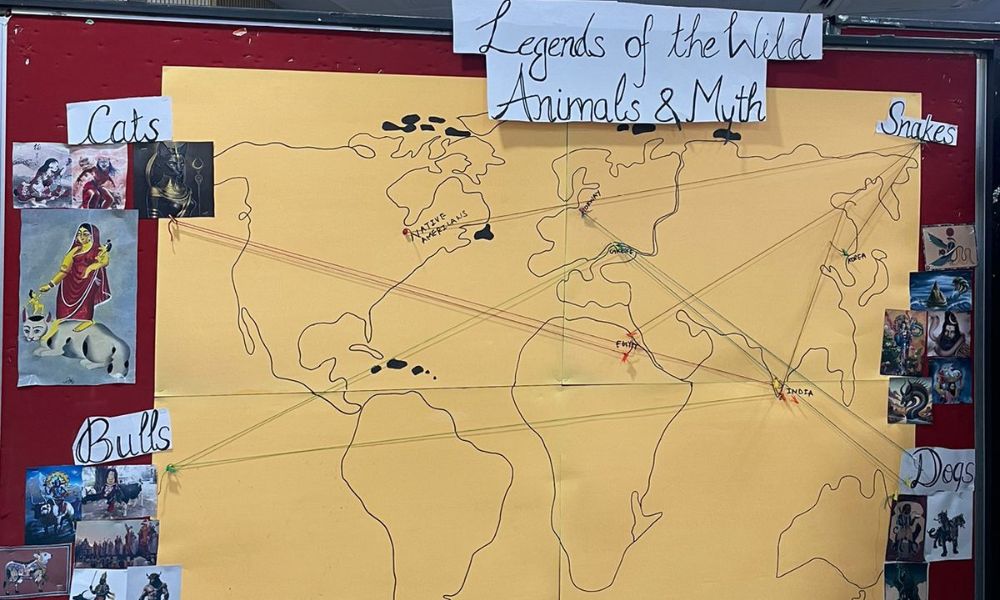 Legends of the Wild
Animals & Myth
Cats
Snakes
NATIVE
AMERICANS
NORWAY
GREECE
KOREA
EGYPT
INDIA
Bulls
Dogs